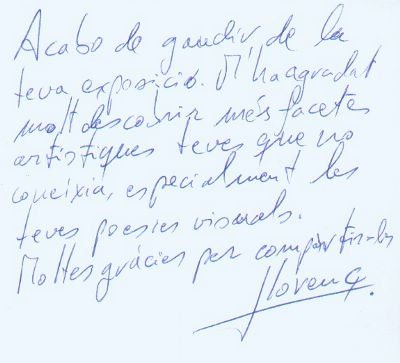 Acabo de gaudir, de la
teva exposició. M'ha agradat
molt descobrir més facetes
artístiques teves que no
coneixia, especialment les
teves poesies visuals.
Moltes gràcies per compartir-les
Llorenç.